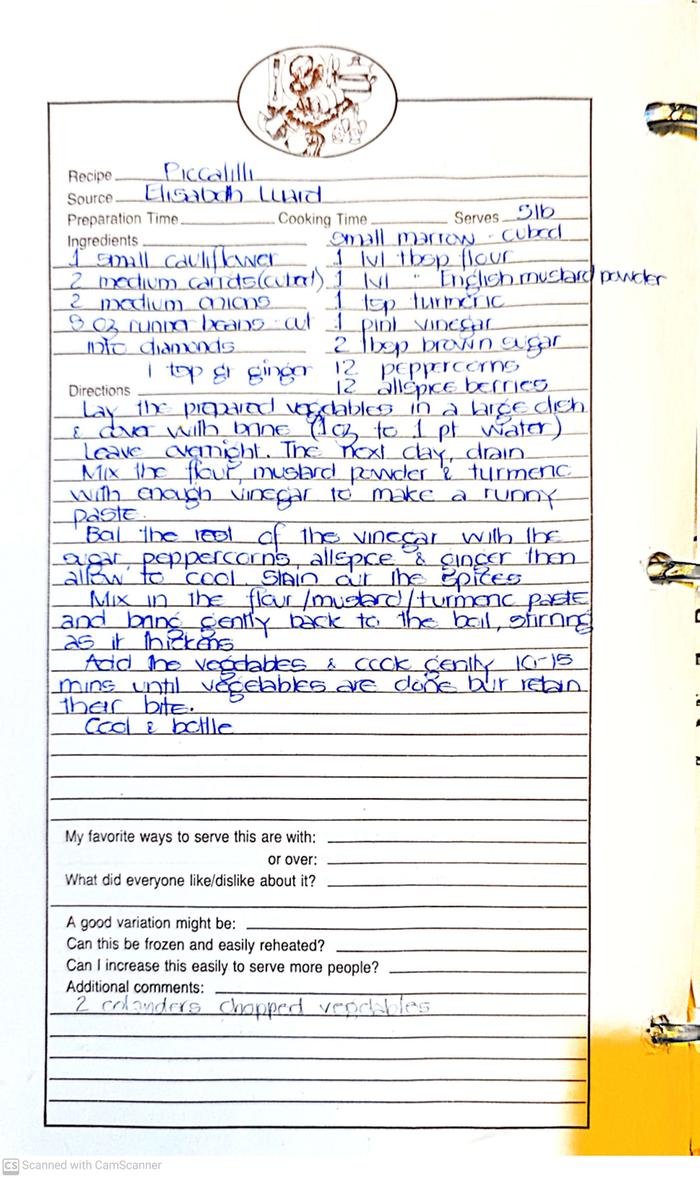 Recipe Piccalilli
Source Elisabeth Luard
Preparation Time Cooking Time Serves 5lb
Ingredients
1 small cauliflower
2 medium carrots (cubed)
2 medium onions
8 oz runner beans - cut
into diamonds
1 tsp gr ginger
small marrow - cubed
1 lvl tbsp flour
1 lvl " English mustard powder
1 tsp turmeric
1 pint vinegar
2 tbsp brown sugar
12 peppercorns
12 allspice berries
Directions
Lay the prepared vegetables in a large dish
& cover with brine (1oz to 1 pt water)
Leave overnight. The next day, drain
Mix the flour, mustard powder & turmeric
with enough vinegar to make a runny
paste.
Boil the rest of the vinegar with the
sugar, peppercorns, allspice & ginger then
allow to cool. Strain out the spices
Mix in the flour/mustard/turmeric paste
and bring gently back to the boil, stirring
as it thickens
Add the vegetables & cook gently 10-15
mins until vegetables are done but retain
their bite.
Cool & bottle
My favorite ways to serve this are with:
or over:
What did everyone like/dislike about it?
A good variation might be:
Can this be frozen and easily reheated?
Can I increase this easily to serve more people?
Additional comments:
2 colanders chopped vegetables
CS Scanned with CamScanner